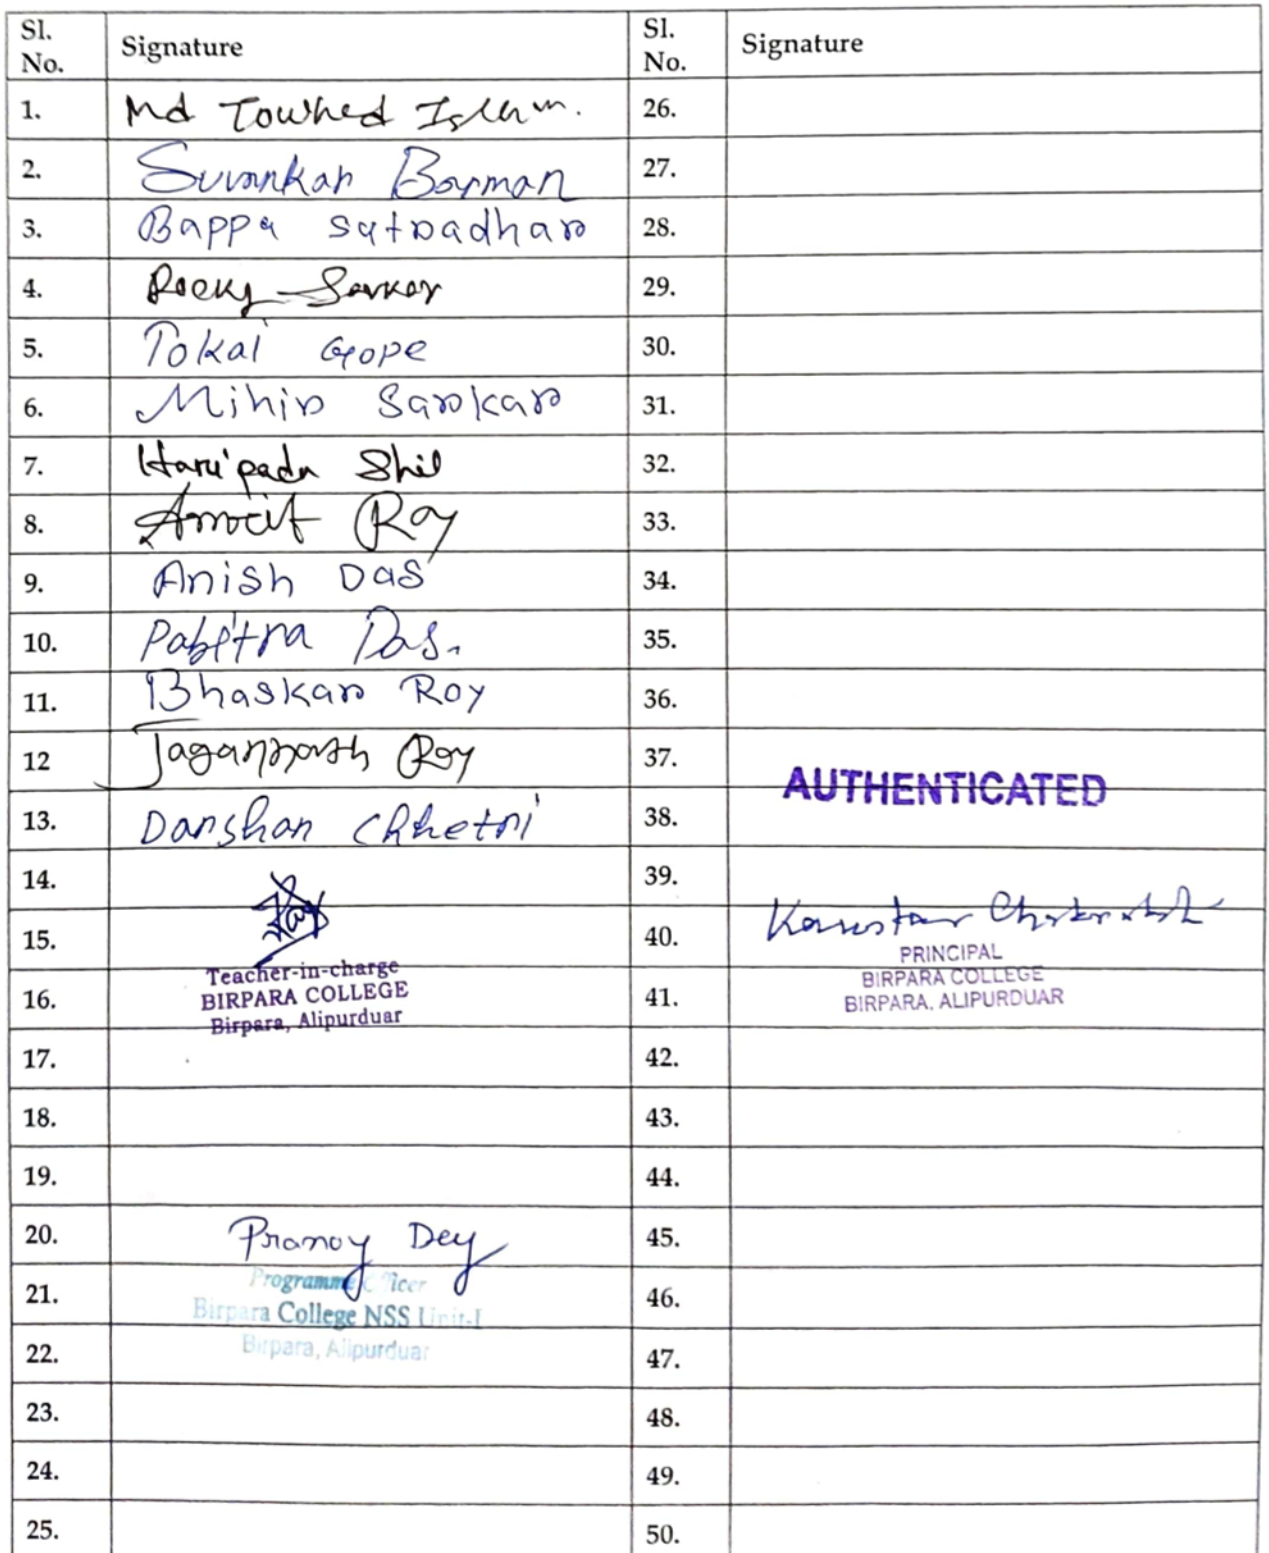 Sl. No. Signature Sl. No. Signature
1. Md Towhed Islam. 26.
2. Suvankar Barman 27.
3. Bappa Sutradhar 28.
4. Rocky Sarkar 29.
5. Tokai Gope 30.
6. Mihir Sarkar 31.
7. Haripada Shil 32.
8. Amrit Roy 33.
9. Anish Das 34.
10. Pabitra Das. 35.
11. Bhaskar Roy 36.
12 Jagannath Roy 37.
AUTHENTICATED
13. Darshan Chhetri 38.
14. 39.
15. 40.
Teacher-in-charge PRINCIPAL
16. BIRPARA COLLEGE 41. BIRPARA COLLEGE
Birpara, Alipurduar BIRPARA, ALIPURDUAR
17. 42.
18. 43.
19. 44.
20. Pranoy Dey 45.
Programme Officer
21. Birpara College NSS Unit-I 46.
22. Birpara, Alipurduar 47.
23. 48.
24. 49.
25. 50.